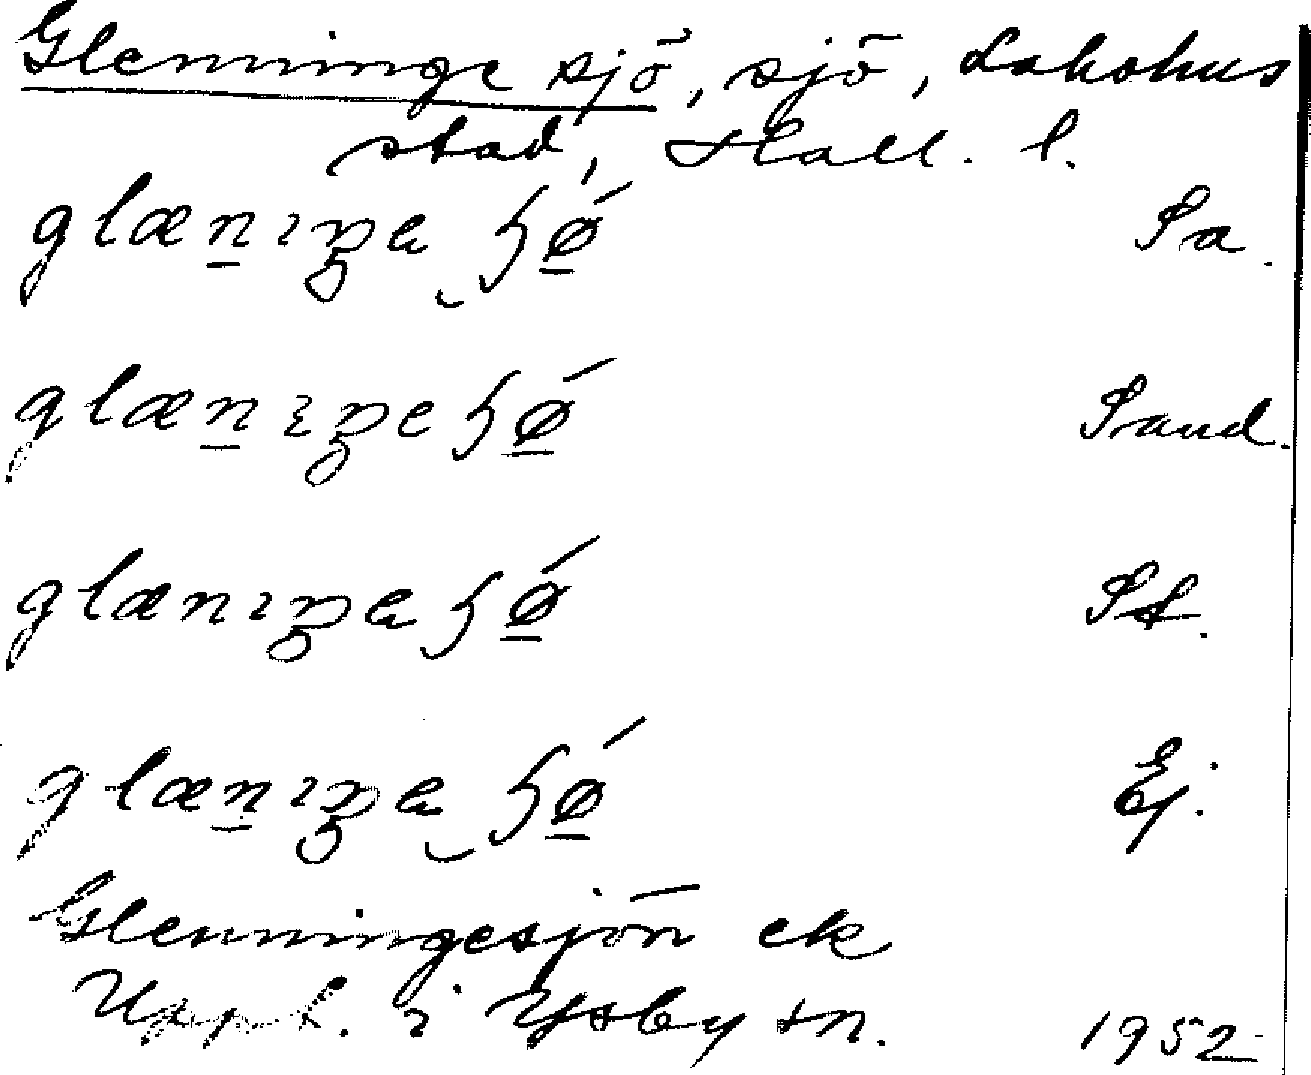 Glenninge sjö, sjö, Laholms
stad, Hall. l.
glæn̲ıŋe ɧǿ̲ Sa.
glæn̲ıŋe ɧǿ̲ Sand.
glænıŋe ɧǿ̲ St.
glæn̲ıŋe ɧǿ̲ Ej.
Glenningesjön ek
Uppt. i Ysby sn. 1952